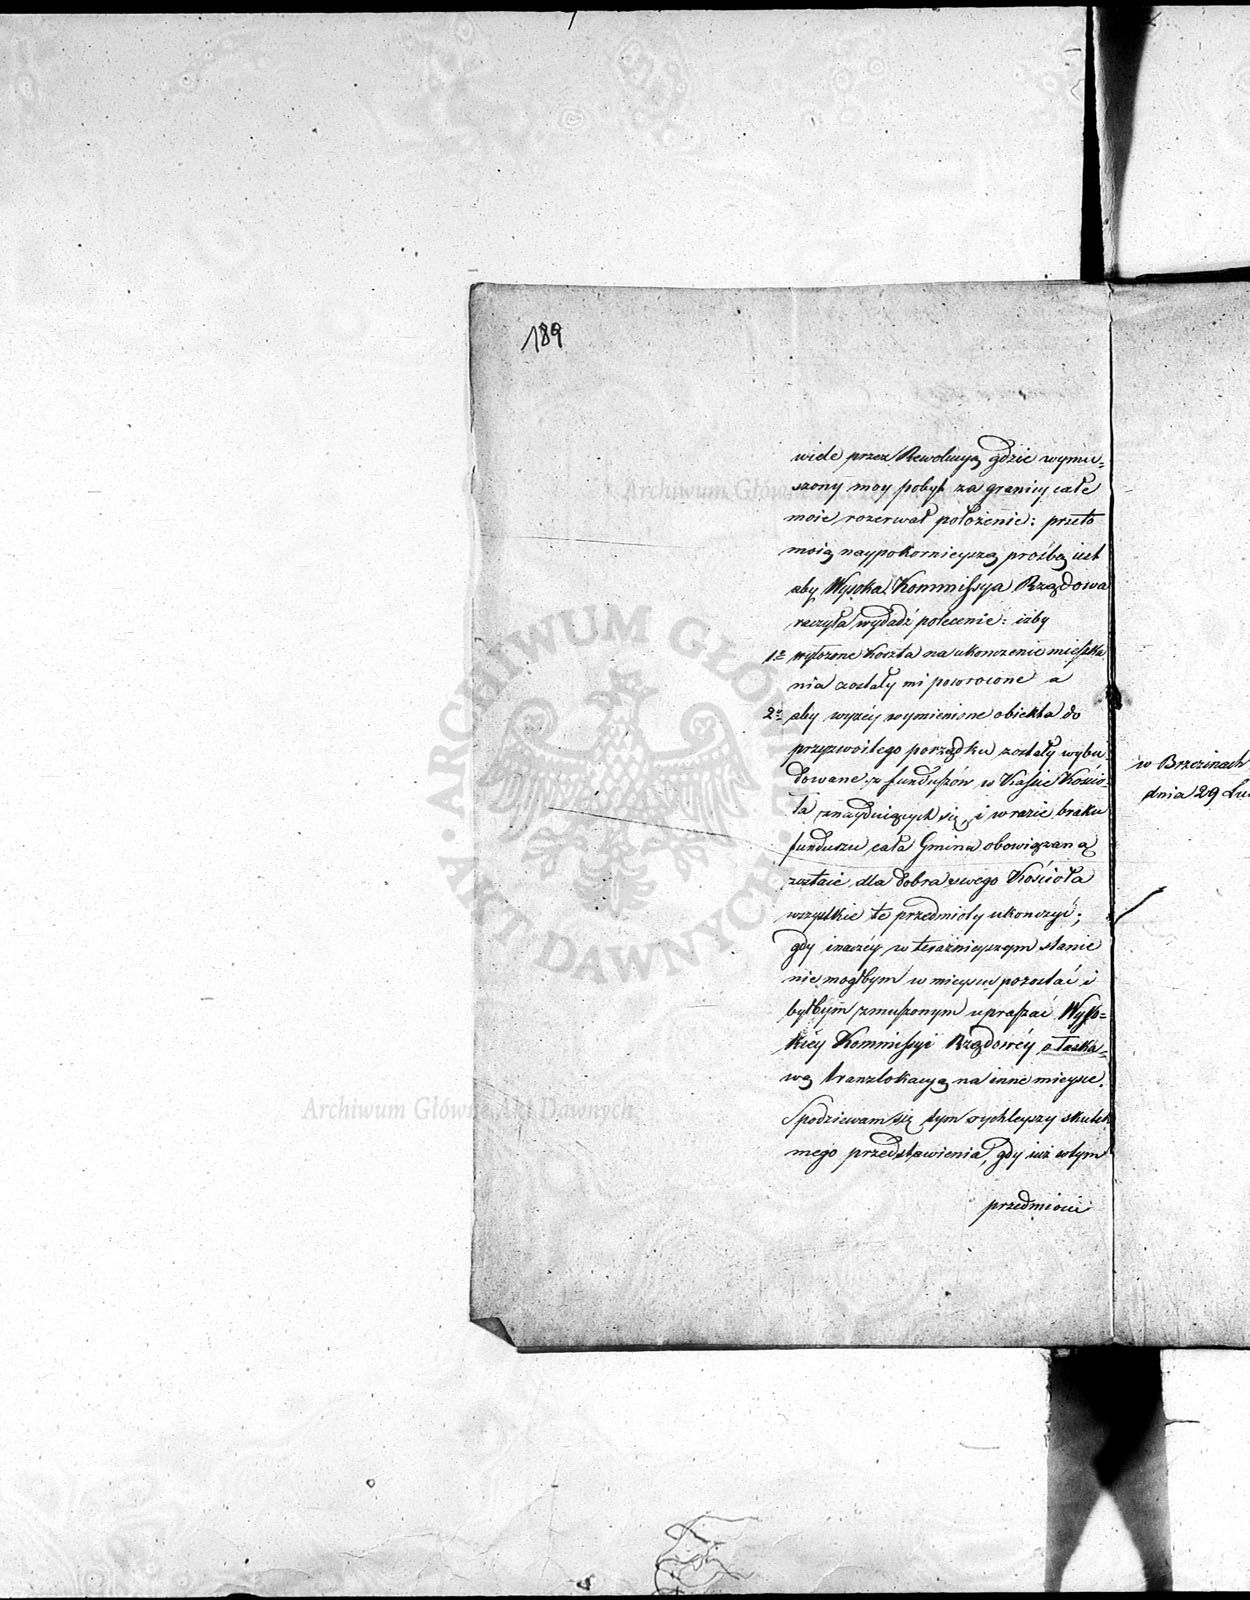 189
wiele przez Rewolucyą gdzie wymu=
szony moy pobyt za granicy całe
moie rozerwał położenie: przeto
moią naypokornieyszą prośbą iest
aby Wysoka Kommissya Rządowa
raczyła wydadź polecenie: iżby
1e wyłożone koszta na ukonczenie mieszka
nia zostały mi powrocone a
2e aby wyżéy wymienione obiekta do
przyzwoitego porządku zostały wybu=
dowane z funduszów w Kassie Kościo=
ła znayduiących się, i w razie braku
funduszu cała Gmina obowiązaną
zostaie dla dobra swego Kościoła
wszystkie te przedmioty ukonczyć;
gdy inaczéy w teraźnieyszym stanie
nie mogłbym w mieyscu pozostać i
byłbym zmuszonym upraszać Wyso=
kiéy Kommissyi Rządowéy o łaska=
wą tranzlokacyą na inne mieysce.
Spodziewam się tym rychleyszy skutek
mego przedstawienia, gdy iuż w tym
przedmiocie
w Brzezinach
dnia 29 Lu
ARCHIWUM GŁÓWNE AKT DAWNYCH
Archiwum Główne Akt Dawnych
Archiwum Główne Akt Dawnych